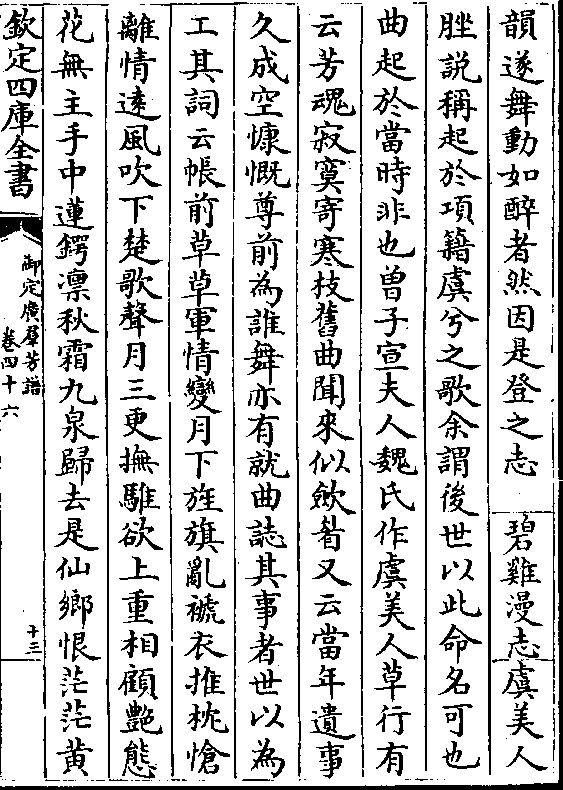 韻遂舞動如醉者然因是登之志　碧雞漫志虞美人
脞說稱起於項籍虞兮之歌余謂後世以此命名可也
曲起於當時非也曾子宣夫人魏氏作虞美人草行有
云芳魂寂寞寄寒枝舊曲聞來似斂眉又云當年遺事
久成空慷慨尊前為誰舞亦有就曲誌其事者世以為
工其詞云帳前草草軍情變月下旌旗亂褫衣推枕愴
離情逺風吹下楚歌聲月三更撫騅欲上重相顧艷態
花無主手中蓮鍔凛秋霜九泉歸去是仙鄉恨茫茫黄
欽定四庫全書
御定廣羣芳譜
卷四十六
十三